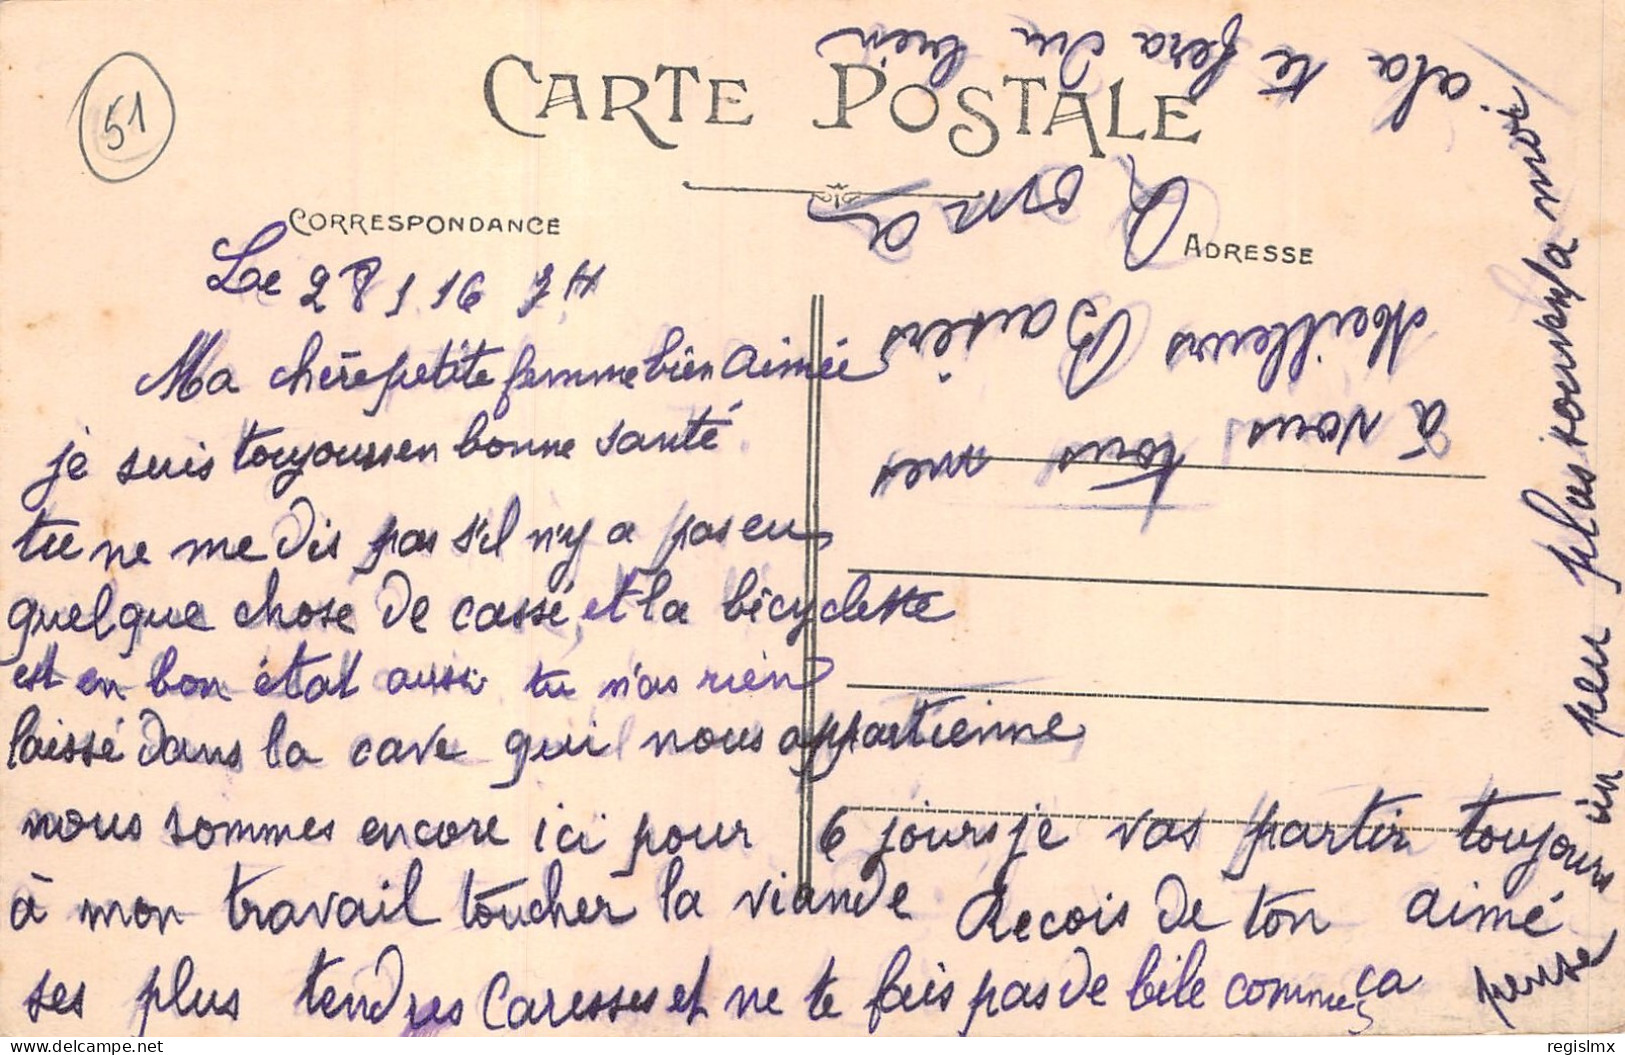 51
CARTE POSTALE
CORRESPONDANCE
ADRESSE
Le 28 1 16 7H
Ma chère petite femme bien aimée
je suis toujours en bonne santé
tu ne me dis pas s'il n'y a pas eu
quelque chose de cassé et la bicyclette
est en bon état aussi tu n'as rien
laissé dans la cave qui nous appartienne
nous sommes encore ici pour 6 jours je vas partir toujours
à mon travail toucher la viande Recois de ton aimé
ses plus tendres Caresses et ne te fais pas de bile comme ça
pense toujours un peu plus souvent a moi
cela te fera du bien
à vous tous mes
Meilleurs Baisers
delcampe.net
regislmx